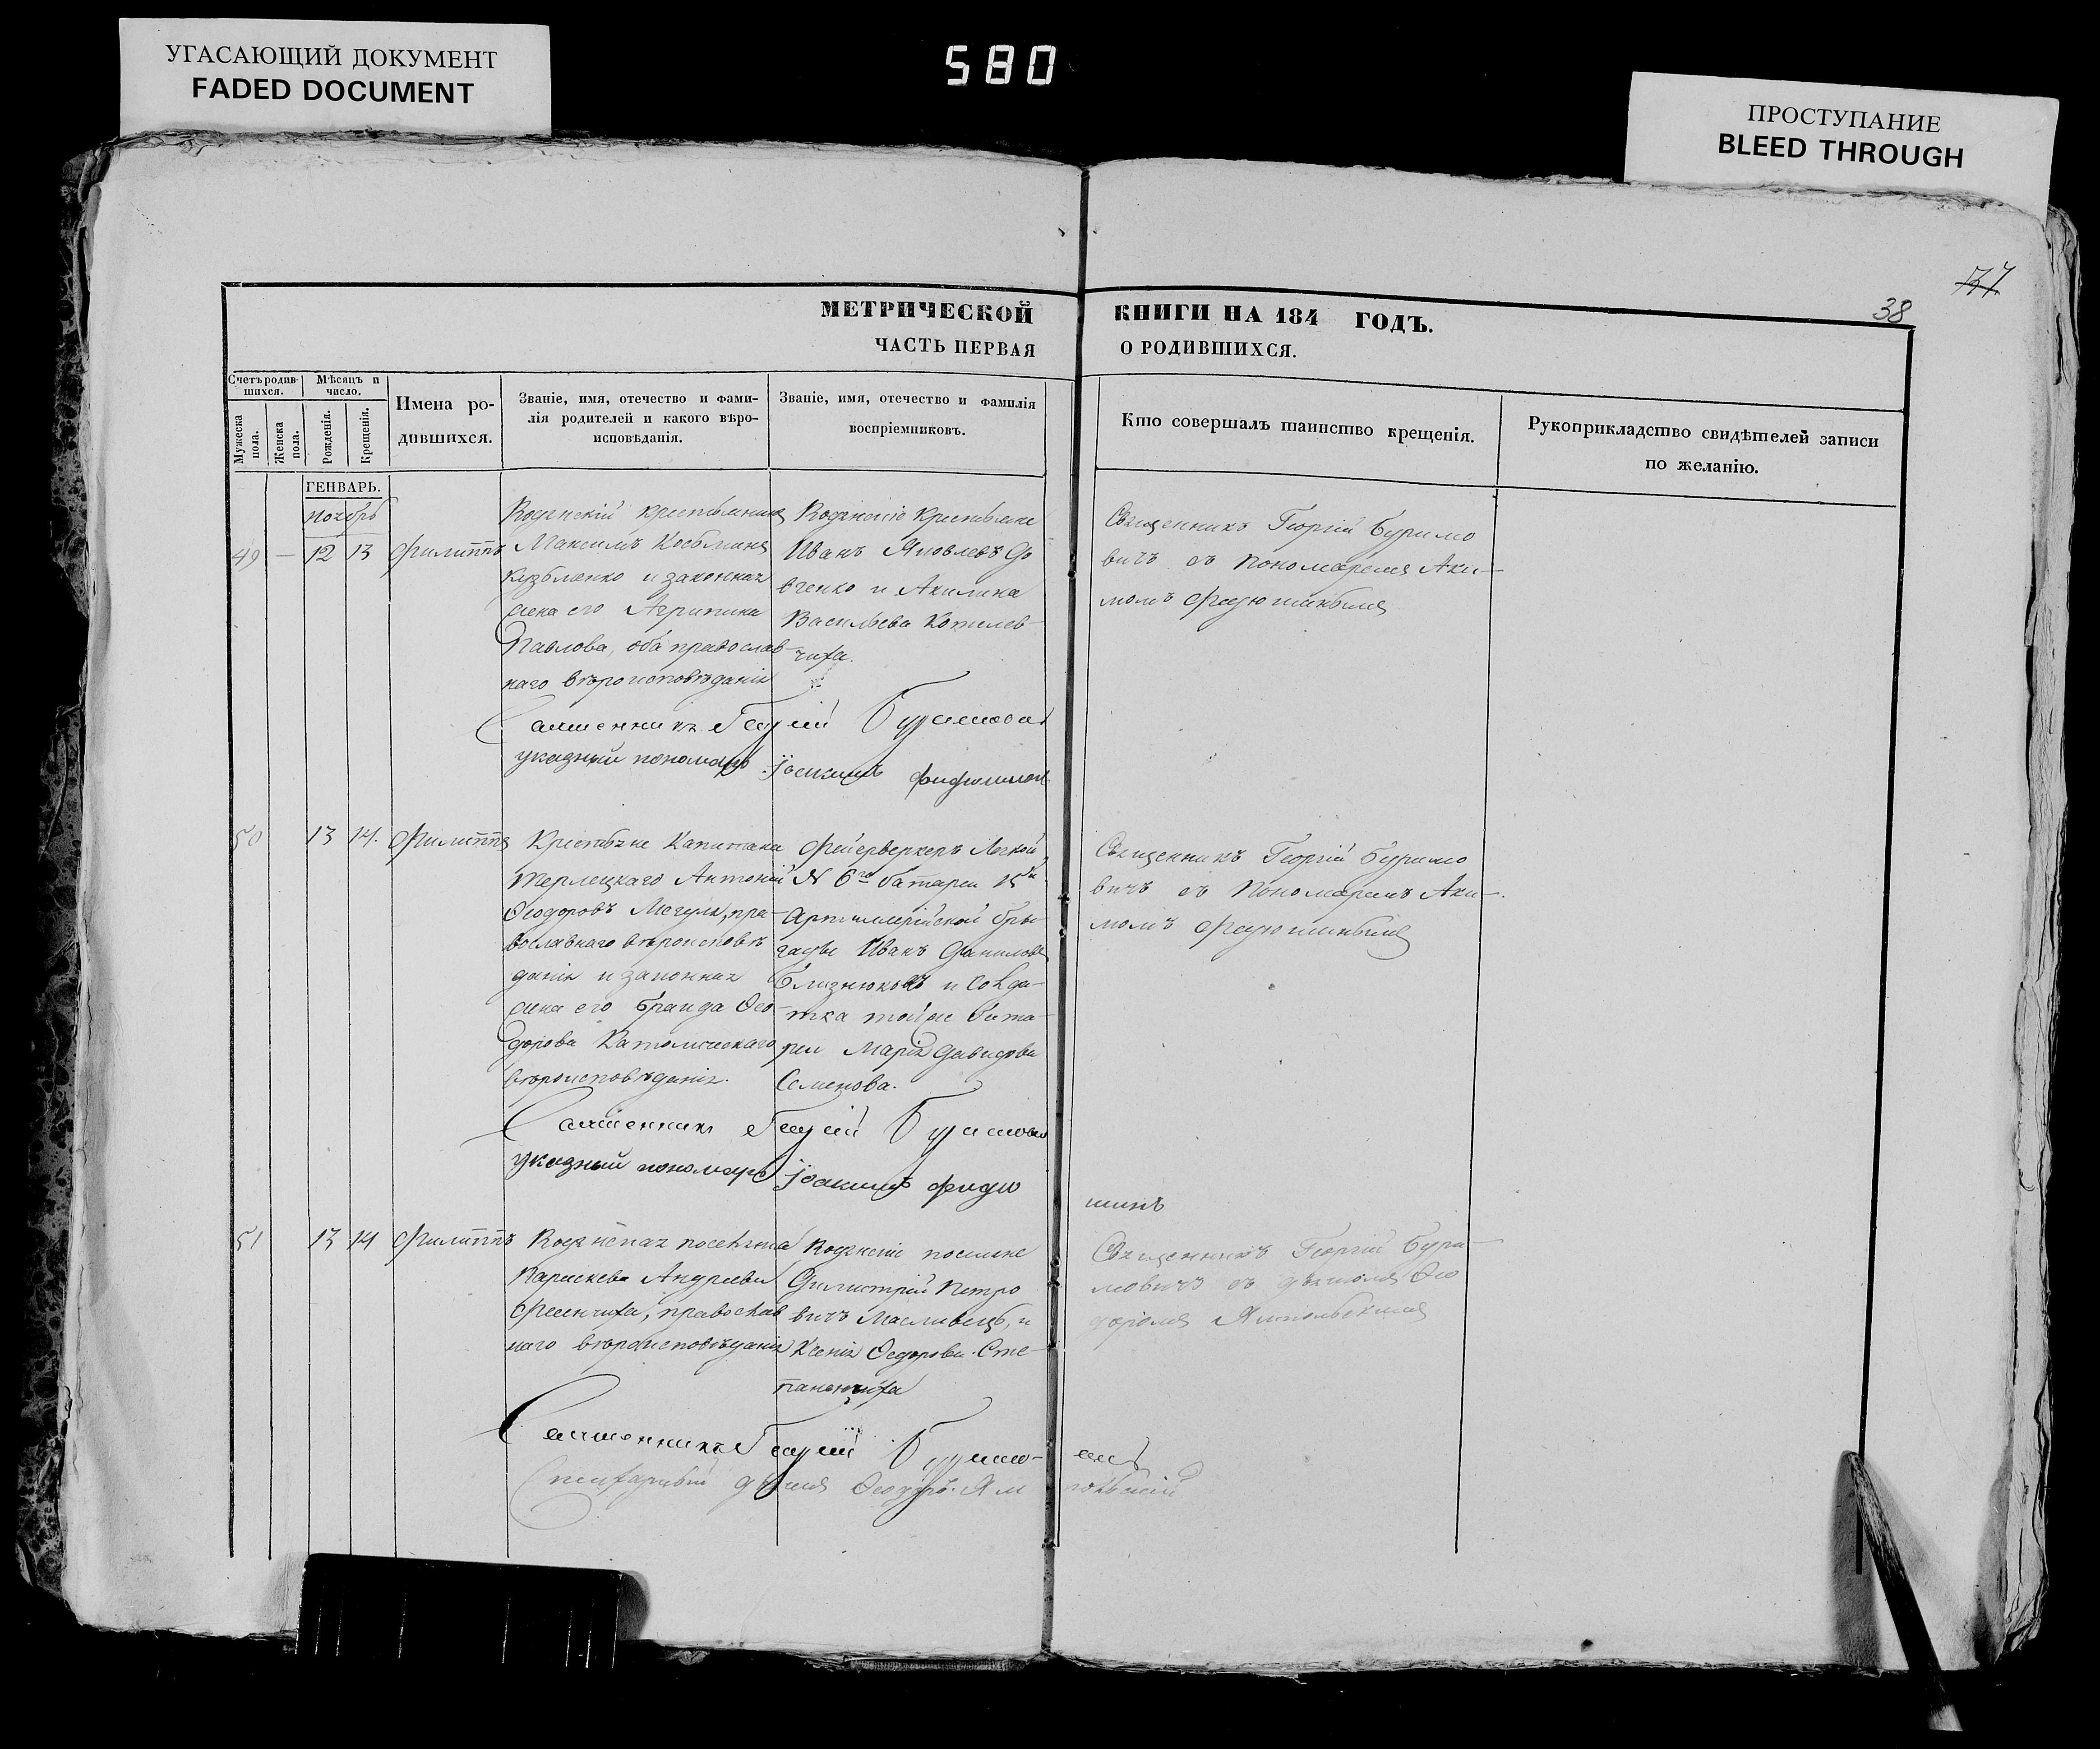 УГАСАЮЩИЙ ДОКУМЕНТ
FADED DOCUMENT
580
ПРОСТУПАНИЕ
BLEED THROUGH
38
МЕТРИЧЕСКОЙ КНИГИ НА 184 ГОДЪ.
ЧАСТЬ ПЕРВАЯ О РОДИВШИХСЯ.
Счетъ родив-
шихся.
Мужеска
пола.
Женска
пола.
Мѣсяцъ и
число.
Рожденія.
Крещенія.
Имена ро-
дившихся.
Званіе, имя, отечество и фами-
лія родителей и какого вѣро-
исповѣданія.
Званіе, имя, отечество и фамилія
воспріемниковъ.
Кто совершалъ таинство крещенія.
Рукоприкладство свидѣтелей записи
по желанію.
ГЕНВАРЬ.
Ноябрь
49 — 12 13 Филиппъ
Максимъ Косьминъ
Кузьменко и законная
жена его Агрипина
Павлова, оба православ-
наго вѣроисповѣданія
Иванъ Яковлевъ До
вченко и Акилина
Васильева Котлев-
чиха.
Священникъ Георгій Буримо
вичъ съ Пономаремъ Аки-
момъ Федюшинымъ
Священникъ Георгій Буримович
указный пономарь Іоакимъ
50 13 14. Филиппъ
Крестьяне Капитана
Терлецкаго Антоній
Ѳеодоровъ пра-
вославнаго вѣроисповѣ
данія и законная
жена его Ѳео-
дорова Католическаго
вѣроисповѣданія.
Фейерверкеръ Легкой
N 6го батареи 15й
Артиллерійской бри
гады Иванъ Данилов
Близнюковъ и солда-
тка тойже бата-
реи Марія Давидова
Семенова.
Священникъ Георгій Буримо
вичъ съ Пономаремъ Аки-
момъ Федюшинымъ
Священникъ Георгій Буримович
указный пономарь Іоакимъ Федю
шинъ
51 13 14 Филиппъ
Параскева Андреева
православ
наго вѣроисповѣданія
Димитрій Петро
вичъ Масливецъ, и
Ксенія Ѳедорова Сте-
паненчиха
Священникъ Георгій Бури-
мовичъ съ дьякомъ Ѳео
доромъ Ямпольскимъ
Священникъ Георгій Буримо-
Стихарный дьякъ Ѳеодоръ Ям польскій